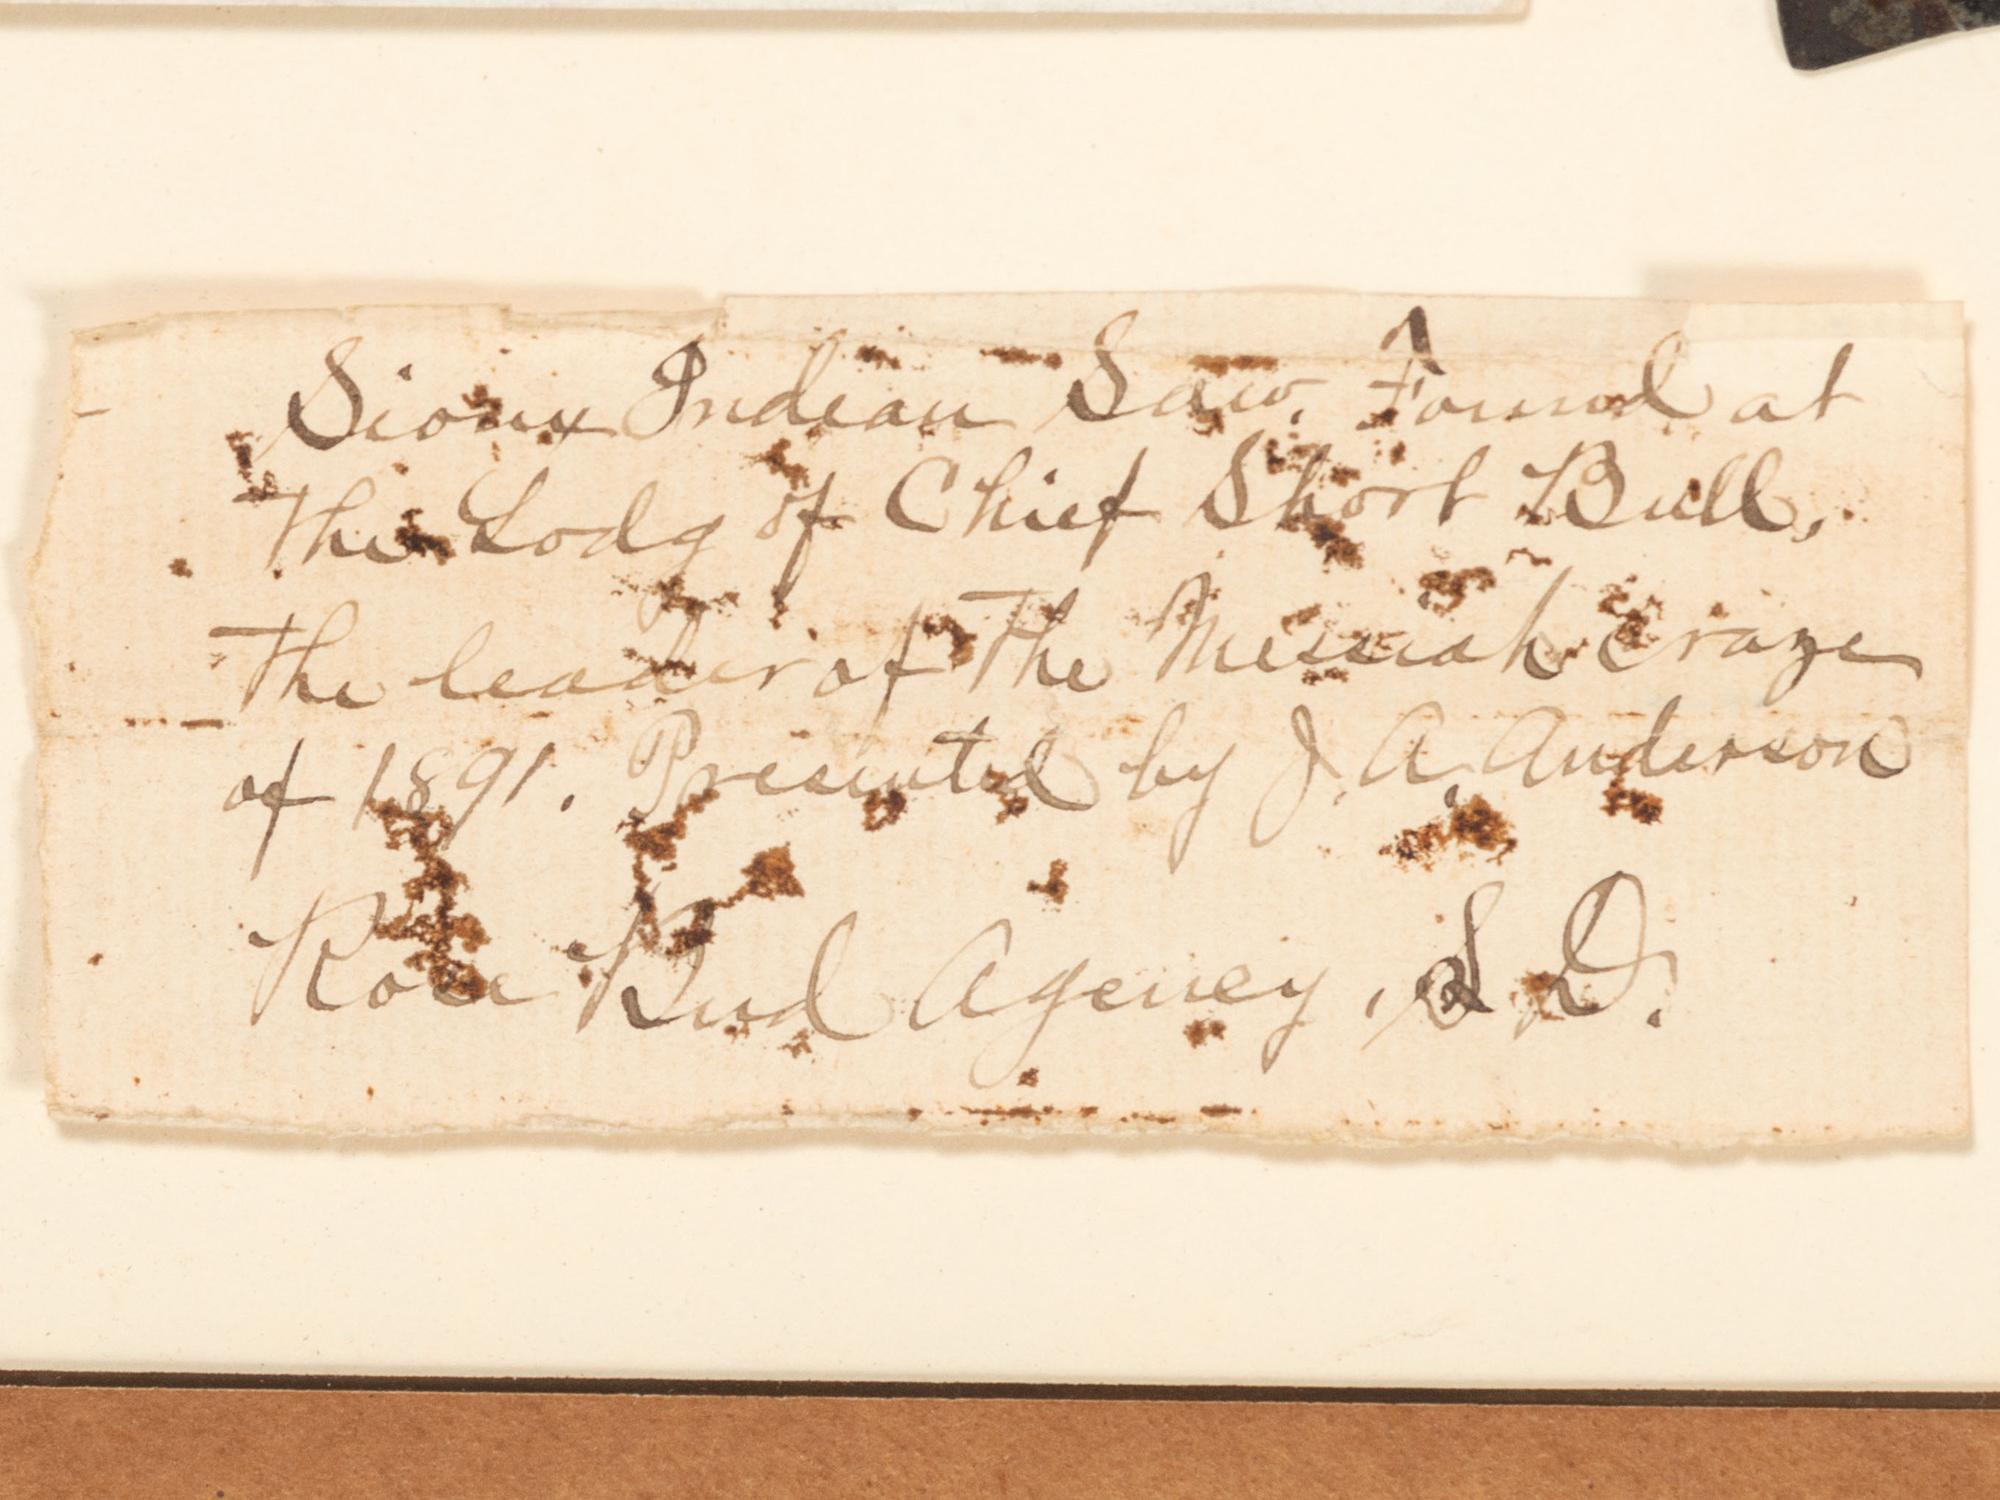 Sioux Indian Saw. Found at
the Lodg of Chief Short Bull,
the leader of the Messiah craze
of 1891. Presented by J. A. Anderson
Rose Bud Agency, S. D.